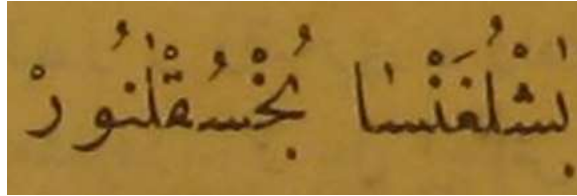 بٰشْلُغَنْسٰا بُخْسُقْلٰنُورْ